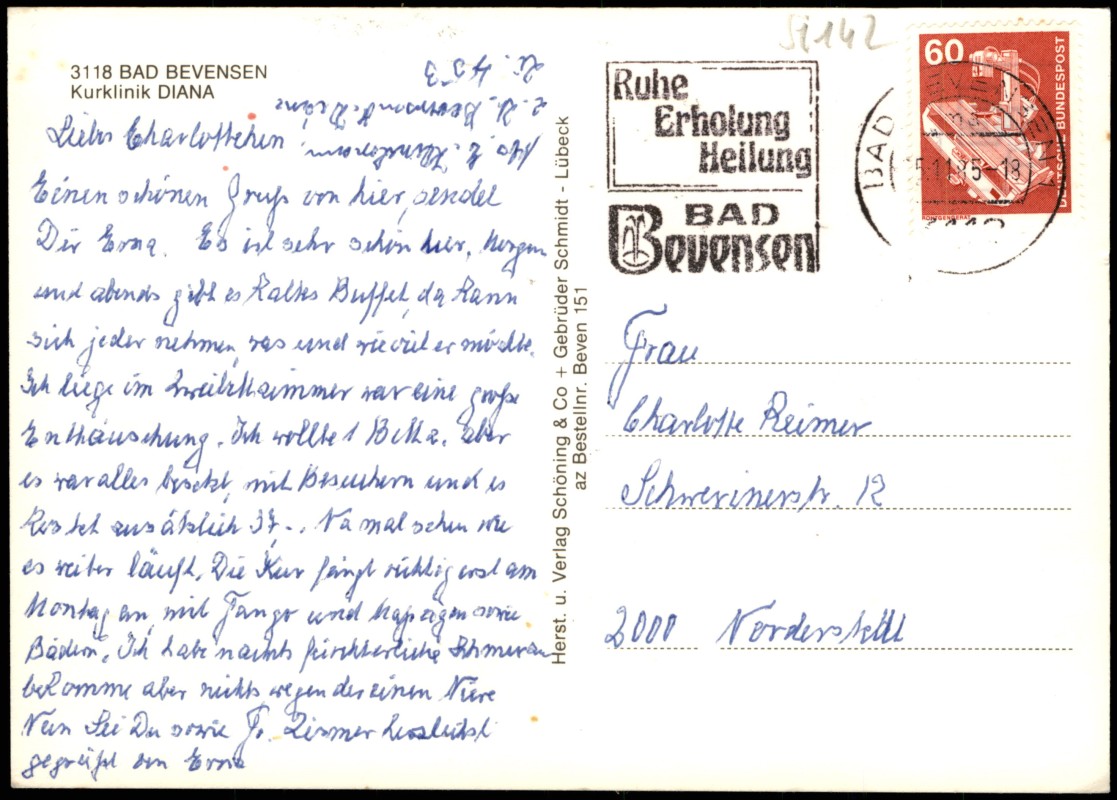 3118 BAD BEVENSEN
Kurklinik DIANA
Abs.
Zi. 453
Liebes Charlottchen!
Einen schönen Gruß von hier, sendet
Dir Erna. Es ist sehr schön hier, Morgens
und abends gibt es Kaltes Buffet, da Kann
sich jeder nehmen, was und wieviel er möchte.
Ich liege im Zweibettzimmer war eine große
Enttäuschung. Ich wollte 1 Bett. aber
es war alles besetzt, mit Besuchern und es
Kostet zusätzlich 37,-. Na mal sehen wie
es weiter läuft. Die Kur fängt richtig erst am
Montag an, mit Fango und Massagen sowie
Bädern. Ich habe nachts fürchterliche Schmerzen
bekomme aber nichts wegen der einen Niere
Nun Sei Du sowie Fr. Zismer herzlichst
gegrüßt von Erna
Herst. u. Verlag Schöning & Co + Gebrüder Schmidt - Lübeck
az Bestellnr. Beven 151
Si142
Ruhe
Erholung
Heilung
BAD
Bevensen
60
DEUTSCHE BUNDESPOST
RÖNTGENGERÄT
BAD BEVENSEN 1
5.11.85-18
Frau
Charlotte Reimer
Schwerinerstr. 12
2000 Norderstedt